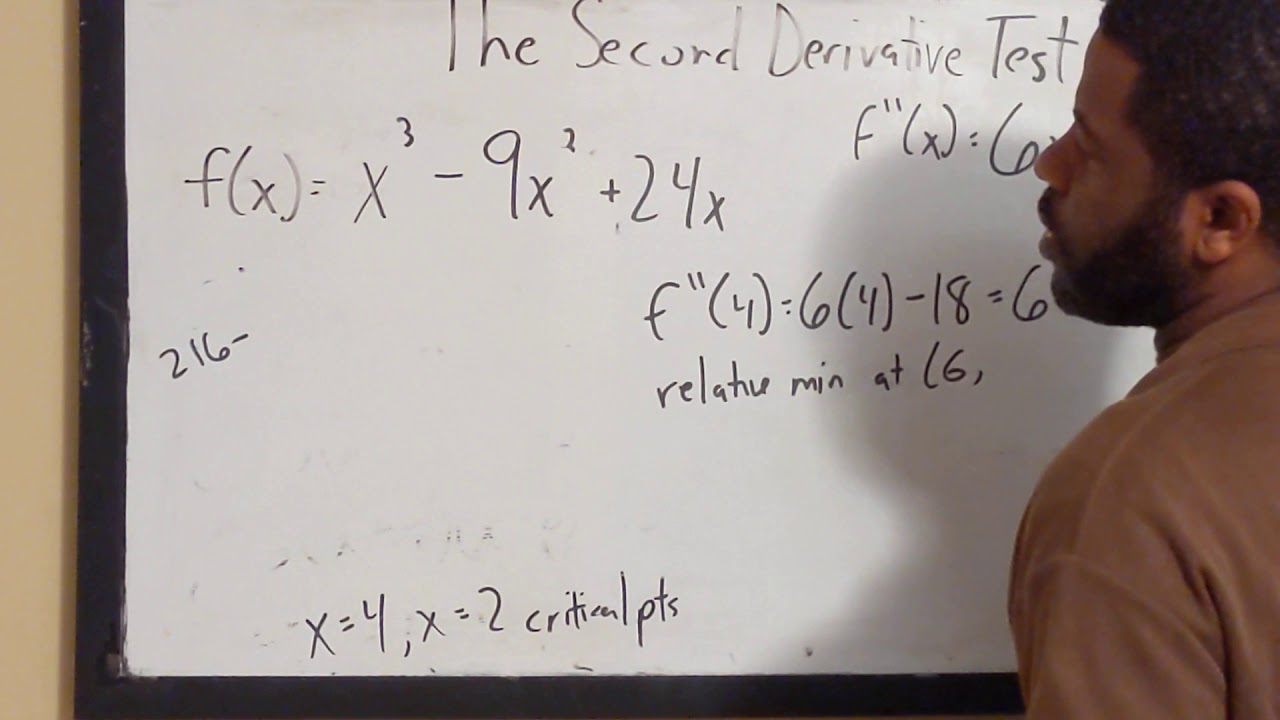 The Second Derivative Test
f''(x) = 6x
f(x) = x³ - 9x² + 24x
f''(4) = 6(4) - 18 = 6
relative min at (6,
216-
x=4, x=2 critical pts